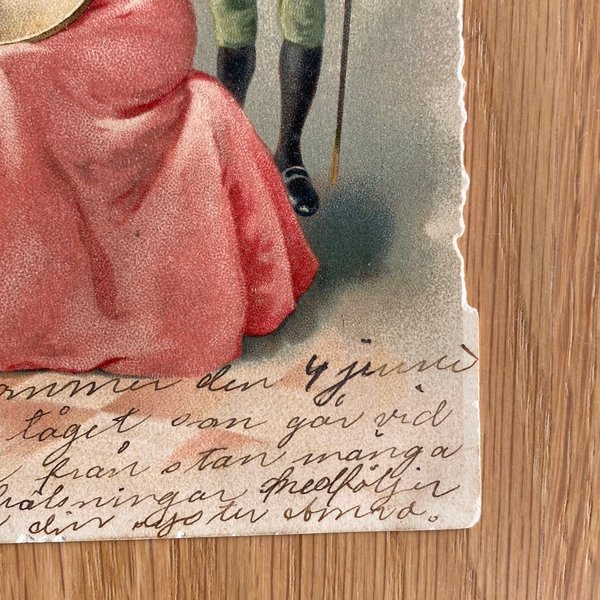 ommer den 4 juni
tåget som går vid
från stan många
hälsningar medföljer
din syster Anna.